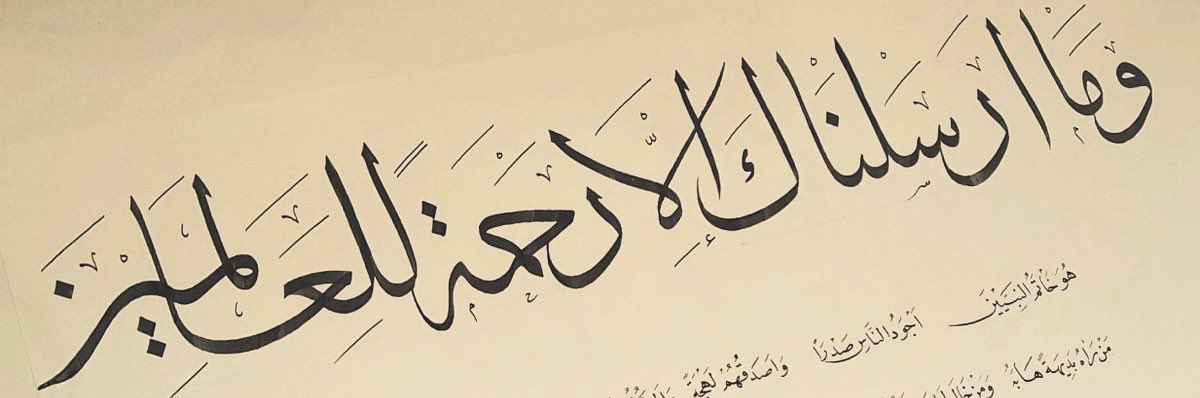 وَمَا اَرْسَلْنَاكَ اِلَّا رَحْمَةً لِلْعَالَمِينَ
هُوَ خَاتَمُ النَّبِيِّينَ اَجْوَدُ النَّاسِ صَدْرًا وَاَصْدَقُهُمْ لَهْجَةً
مَنْ رَاٰهُ بَدِيهَةً هَابَهُ وَمَنْ